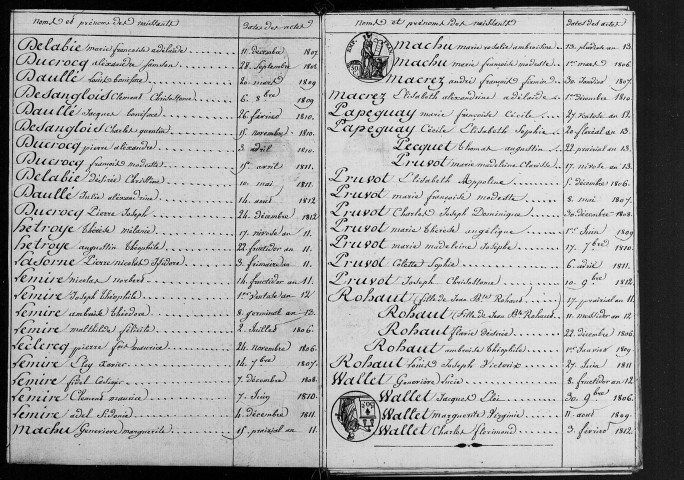 Noms et prénoms des naissants dates des actes
Delabie marie françoise adélaide 11 décembre 1807
Ducrocq alexandre Samson 28 Septembre 1808
Daullé louis boniface 20 mars 1809
Desanglois Clement Christostome 6 8bre 1809
Daullé Jacques boniface 26 février 1810
Desanglois Charles quentin 15 novembre 1810
Ducrocq pierre alexandre 3 avril 1810
Ducrocq françois modeste 15 avril 1811
Delabie désirée Christine 10 mai 1811
Daullé Julie alexandrine 14 août 1812
Ducrocq Pierre Joseph 24 décembre 1812
hétroye thérèse mélanie 17 nivose an 11
hétroye augustin théophile 22 fructidor an 11
Lasorne Pierre nicolas Isidore 3 frimaire an 11
Lemire nicolas norbert 14 fructidor an 11
Lemire Joseph théophile 1er ventose an 12
Lemire ambroise théodore 8 germinal an 12
Lemire mathilde félicité 2 Juillet 1806
Leclercq pierre maurice 24 novembre 1806
Lemire Eloy Xavier 14 7bre 1807
Lemire fidel 7 décembre 1808
Lemire Clement maurice 7 Juin 1810
Lemire adel Sidonie 4 décembre 1811
machu Geneviève marguerite 15 prairial an 11
Noms et prénoms des naissants Dates des actes
machu marie rosalie ambroisine 13 pluviose an 13
machu marie françoise modeste 1er mars 1806
macrez andré françois firmin 30 Janvier 1807
macrez Elisabeth alexandrine adélaide 1er décembre 1810
Papeguay marie françoise Cécile 27 ventose an 11
Papeguay Cécile Elisabeth Sophie 20 floréal an 13
Pecquet thomas augustin 22 prairial an 13
Pruvot marie madeleine 17 nivose an 11
Pruvot Elisabeth Appoline 5 décembre 1806
Pruvot marie françoise modeste 8 mai 1807
Pruvot Charles Joseph Dominique 30 décembre 1808
Pruvot marie thérèse angélique 1er Juin 1809
Pruvot marie madeleine Josephe 17 7bre 1810
Pruvot Colette Sophie 6 avril 1811
Pruvot Joseph Christostome 10 9bre 1812
Rohaut (fille de Jean Bte Rohaut) 17 prairial an 11
Rohaut (fille de Jean Bte Rohaut) 11 messidor an 12
Rohaut florie désirée 22 décembre 1806
Rohaut ambroise théophile 1er Janvier 1809
Rohaut Louis Joseph Victoix 27 Juin 1811
Wallet Geneviève Lucie 8 fructidor an 12
Wallet Jacques Eloi 30 9bre 1806
Wallet marguerite Virginie 11 août 1809
Wallet Charles florimond 3 février 1812